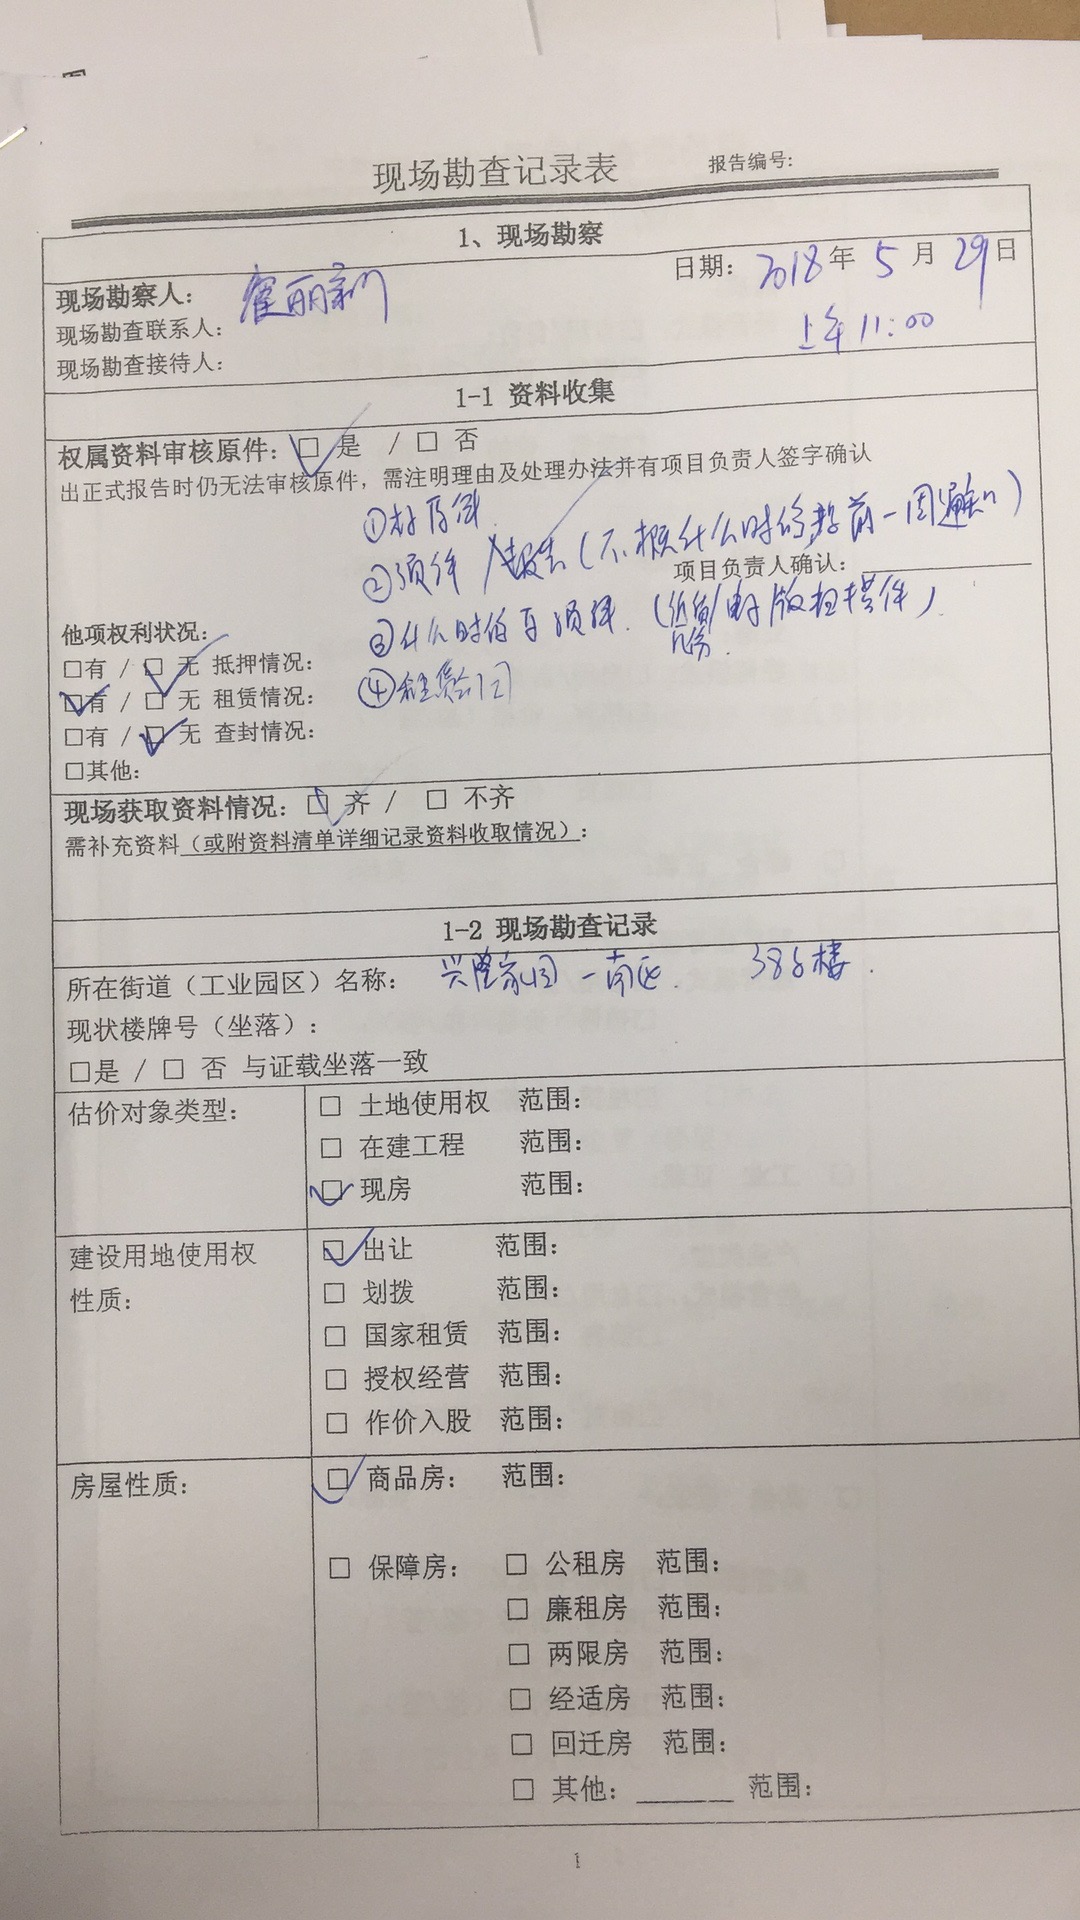 现场勘查记录表 报告编号:
1、现场勘察
现场勘察人： 日期： 2018年 5 月 29日
现场勘查联系人： 上午11:00
现场勘查接待人：
1-1 资料收集
权属资料审核原件：□ 是 / □ 否
出正式报告时仍无法审核原件，需注明理由及处理办法并有项目负责人签字确认
①
② 报告（不 什么时候 前一周通知）
项目负责人确认：
③什么时候 （ 电子版扫描件）
他项权利状况：
□有 / □ 无 抵押情况：
□有 / □ 无 租赁情况： ④租赁合同
□有 / □ 无 查封情况：
□其他：
现场获取资料情况：□ 齐 / □ 不齐
需补充资料（或附资料清单详细记录资料收取情况）：
1-2 现场勘查记录
所在街道（工业园区）名称： 兴隆家园一南区 386楼.
现状楼牌号（坐落）：
□是 / □ 否 与证载坐落一致
估价对象类型： □ 土地使用权 范围：
□ 在建工程 范围：
□ 现房 范围：
建设用地使用权 □ 出让 范围：
性质： □ 划拨 范围：
□ 国家租赁 范围：
□ 授权经营 范围：
□ 作价入股 范围：
房屋性质： □ 商品房： 范围：
□ 保障房： □ 公租房 范围：
□ 廉租房 范围：
□ 两限房 范围：
□ 经适房 范围：
□ 回迁房 范围：
□ 其他：______ 范围：
1